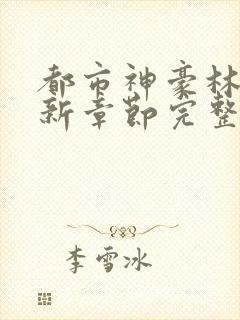 都市神豪林
新章节完整
李雪冰